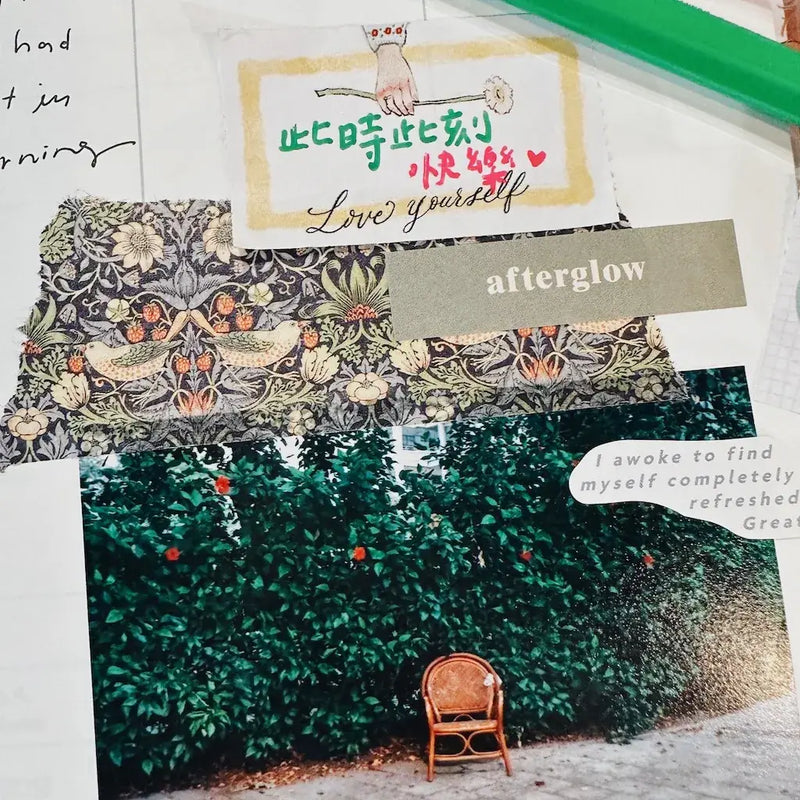 had
in
此時此刻
快樂
Love yourself
afterglow
I awoke to find
myself completely
refreshed
Great